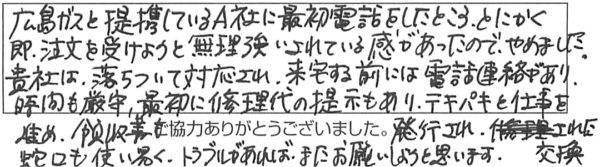 広島ガスと提携しているA社に最初電話をしたところ、とにかく
即、注文を受けようと無理強いされている感があったので、やめました。
貴社は、落ちついて対応され、来宅する前には電話連絡があり、
時間も厳守、最初に修理代の提示もあり、テキパキと仕事を
進め、領収書も ご協力ありがとうございました。 発行され、修理された
蛇口も使い易く、トラブルがあれば、またお願いしようと思います。 交換